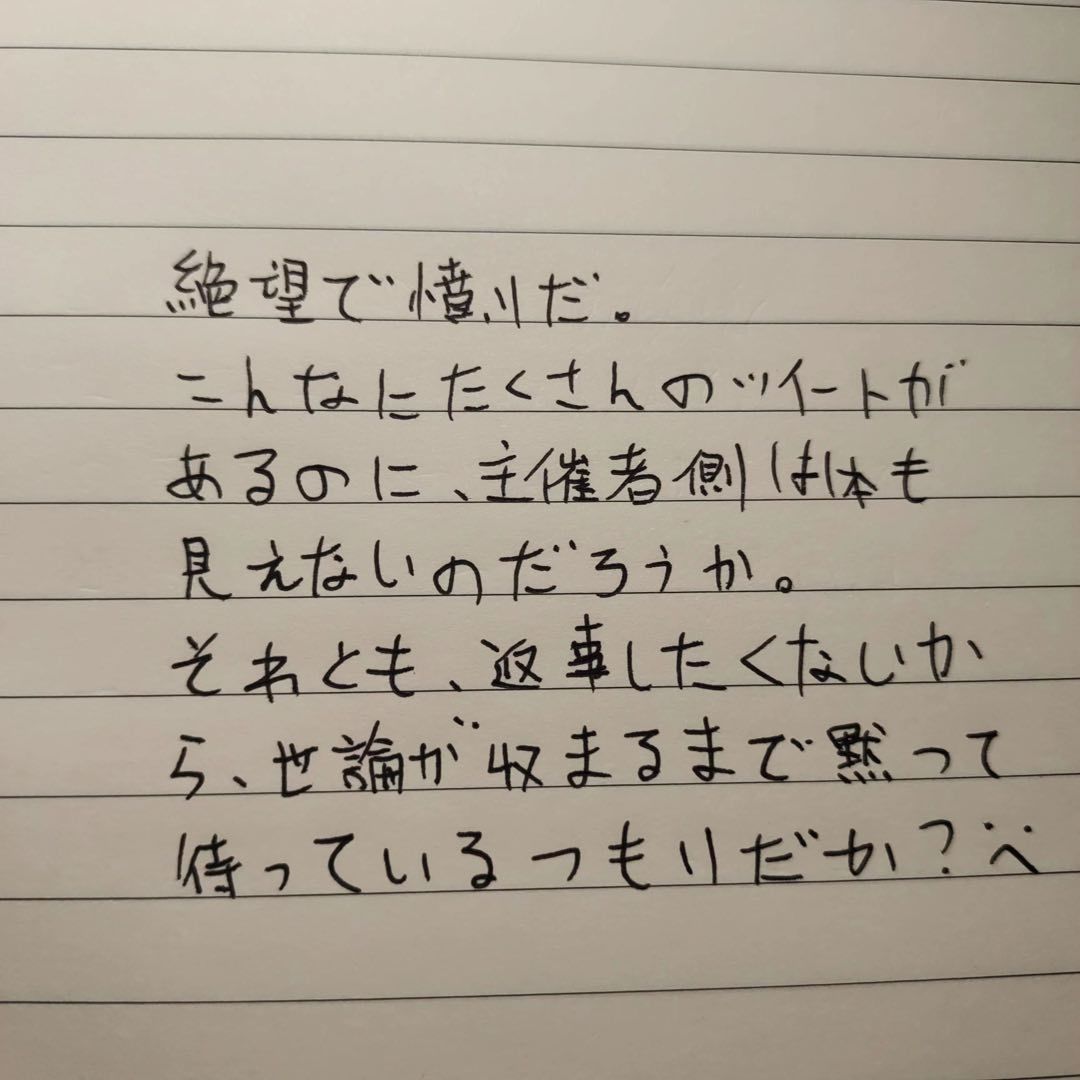 絶望で憤りだ。
こんなにたくさんのツイートが
あるのに、主催者側は1本も
見えないのだろうか。
それとも、返事したくないか
ら、世論が収まるまで黙って
待っているつもりだか?